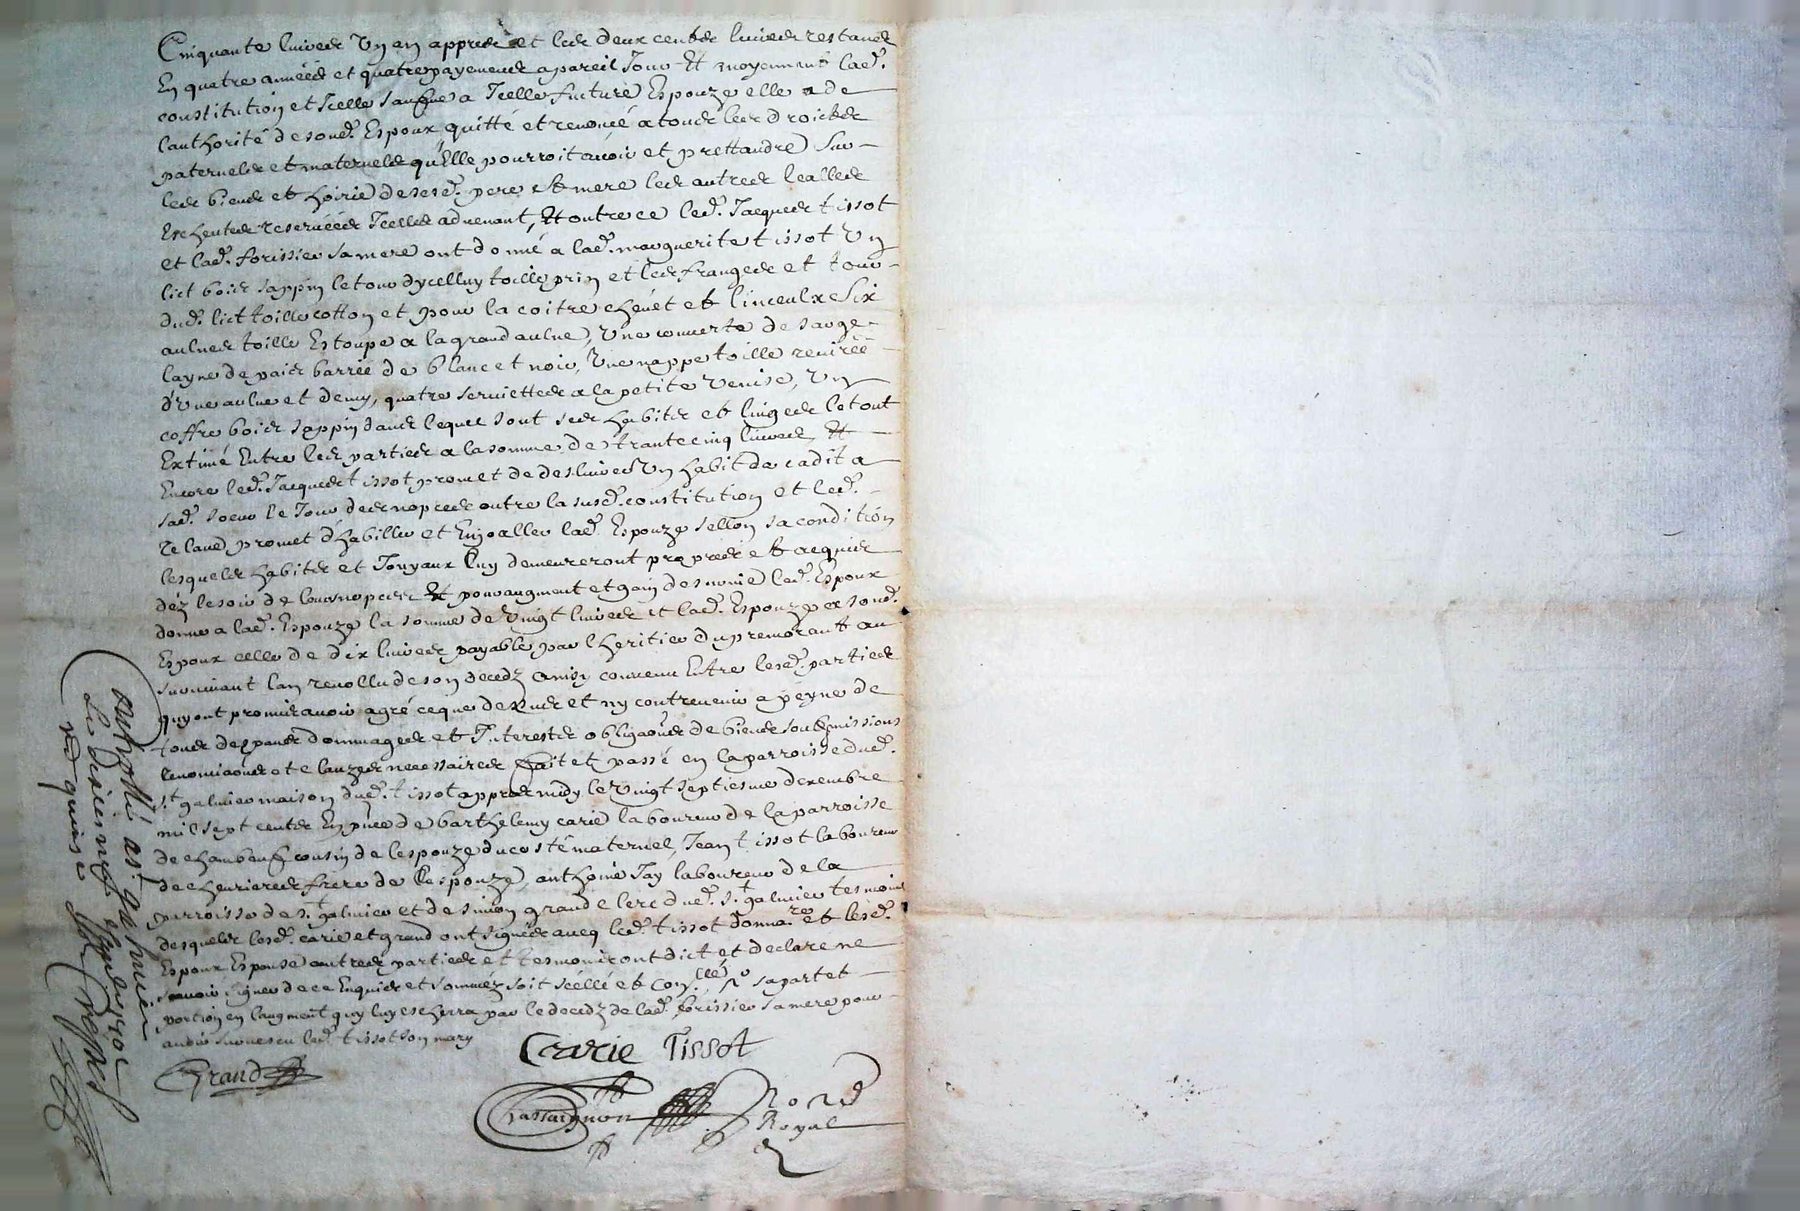 Cinquante livres Un an appres et les deux centz livres restans
En quatre années et quatre payemens a pareil Jour Et moyennant lad.
constitution et Icelle faicte a Icelle future Espouze elle a de
l'authorité de sond. Espoux quitté et renoncé a tous les droictz
paternels et maternels qu'Elle pourroit avoir et prettandre sur
les biens et hoirie de sesd. pere et mere les autres lealles
Escheutes reservées Icelles advenant, Et outre ce led. Jacques tissot
et lad. forissier sa mere ont donné a lad. marguerite tissot Un
lict bois sappin le tour dycelluy toille prin et les franges et tour
dud. lict toille cotton et pour la coitre chevet et linceulx Six
aulnes toille Estoupe a la grand aulne, Une couverte de sarge
layne de pais barrée de blanc et noir, Une nappe toille
d'Une aulne et demy, quatre serviettes a la petite Venise, Un
coffre bois sappin dans lequel sont ses habitz et linges le tout
Extimé Entre les parties a la somme de trante cinq livres, Et
Encore led. Jacques tissot promet de deslivrer Un habit de cadit a
sad. soeur le Jour des nopces outre la susd. constitution et led.
promet d'habiller et Enjoaller lad. Espouze sellon sa condition
lesquels habitz et Jouyaux luy demeureront propres et acquis
déz le soir de leurs nopces Et pour augment et gain de survie led. Espoux
donne a lad. Espouze la somme de Vingt livres et lad. Espouze a sond.
Espoux celle de dix livres payable par l'heritier du premorant au
survivant l'an revollu de son decedz Ainsy convenu Entre lesd. parties
quy ont promis avoir agré ce que dessus et ny contrevenir a peyne de
tous despans dommages et Interestz obligaons de biens soubmissions
renonciaons et clauzes necessaires fait et passé en la parroisse dud.
St galmier maison dud. tissot appres midy le Vingt septiesme dexembre
mil sept centz En pnce de barthelemy carie laboureur de la parroisse
de chambeuf cousin de l'espouze du costé maternel, Jean tissot laboureur
de chevrieres frere de l'espouze, anthoine Jay laboureur de la
parroisse de St galmier et de simon grand clerc dud. St galmier tesmoins
desquels lesd. carie et grand ont signé avec led. tissot donnare et lesd.
Espoux Espouse autres parties et tesmoins ont dict et declare ne
scavoir signer de ce Enquis et sommez soit scéllé et con.llé sa part et
portion en l'augment quy luy escherra par le decedz de lad. forissier sa mere pour
avoir survescu led. tissot son mary
Crarie Tissot
Grand
Chassaignon
Nore
Royal
Controllé a St galmier